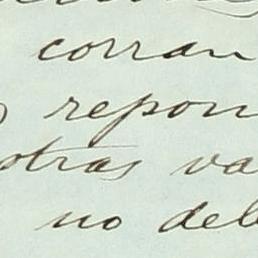 corran
repon
otras va
no deb